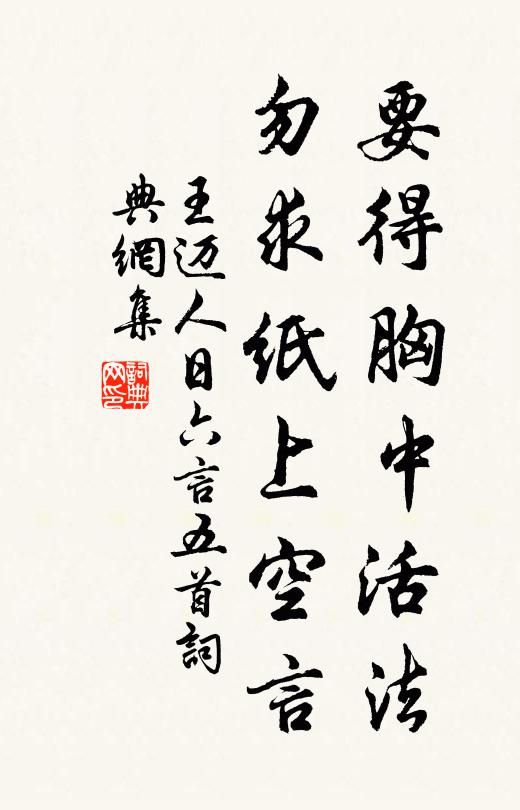 要得胸中活法
勿求紙上空言
王迈人日六言五首詞
典網集
詞典
网印